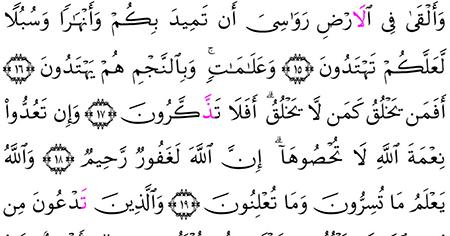 وَأَلْقَىٰ فِى الَارْضِ رَوَٰسِىَ أَن تَمِيدَ بِكُمْ وَأَنْهَٰرًا وَسُبُلًا
لَّعَلَّكُمْ تَهْتَدُونَ ١٥ وَعَلَٰمَٰتٍۚ وَبِالنَّجْمِ هُمْ يَهْتَدُونَ ١٦
أَفَمَن يَخْلُقُ كَمَن لَّا يَخْلُقُۗ أَفَلَا تَذَّكَّرُونَ ١٧ وَإِن تَعُدُّوا۟
نِعْمَةَ اللَّهِ لَا تُحْصُوهَآۗ إِنَّ اللَّهَ لَغَفُورٌ رَّحِيمٌ ١٨ وَاللَّهُ
يَعْلَمُ مَا تُسِرُّونَ وَمَا تُعْلِنُونَ ١٩ وَالَّذِينَ تَدْعُونَ مِن